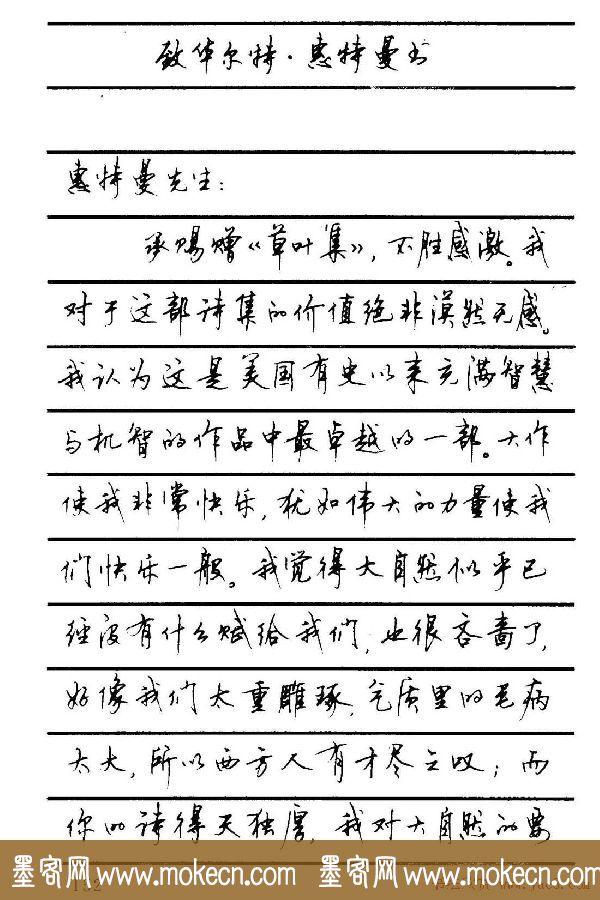 致华尔特·惠特曼书
惠特曼先生：
承赐赠《草叶集》，不胜感激。我
对于这部诗集的价值绝非漠然无感。
我认为这是美国有史以来充满智慧
与机智的作品中最卓越的一部。大作
使我非常快乐，犹如伟大的力量使我
们快乐一般。我觉得大自然似乎已
经没有什么赋给我们，也很吝啬了，
好像我们太重雕琢，气质里的毛病
太大，所以西方人有才尽之叹；而
你的诗得天独厚，我对大自然的要
墨客网 www.mokecn.com 墨客网 www.mokecn.com